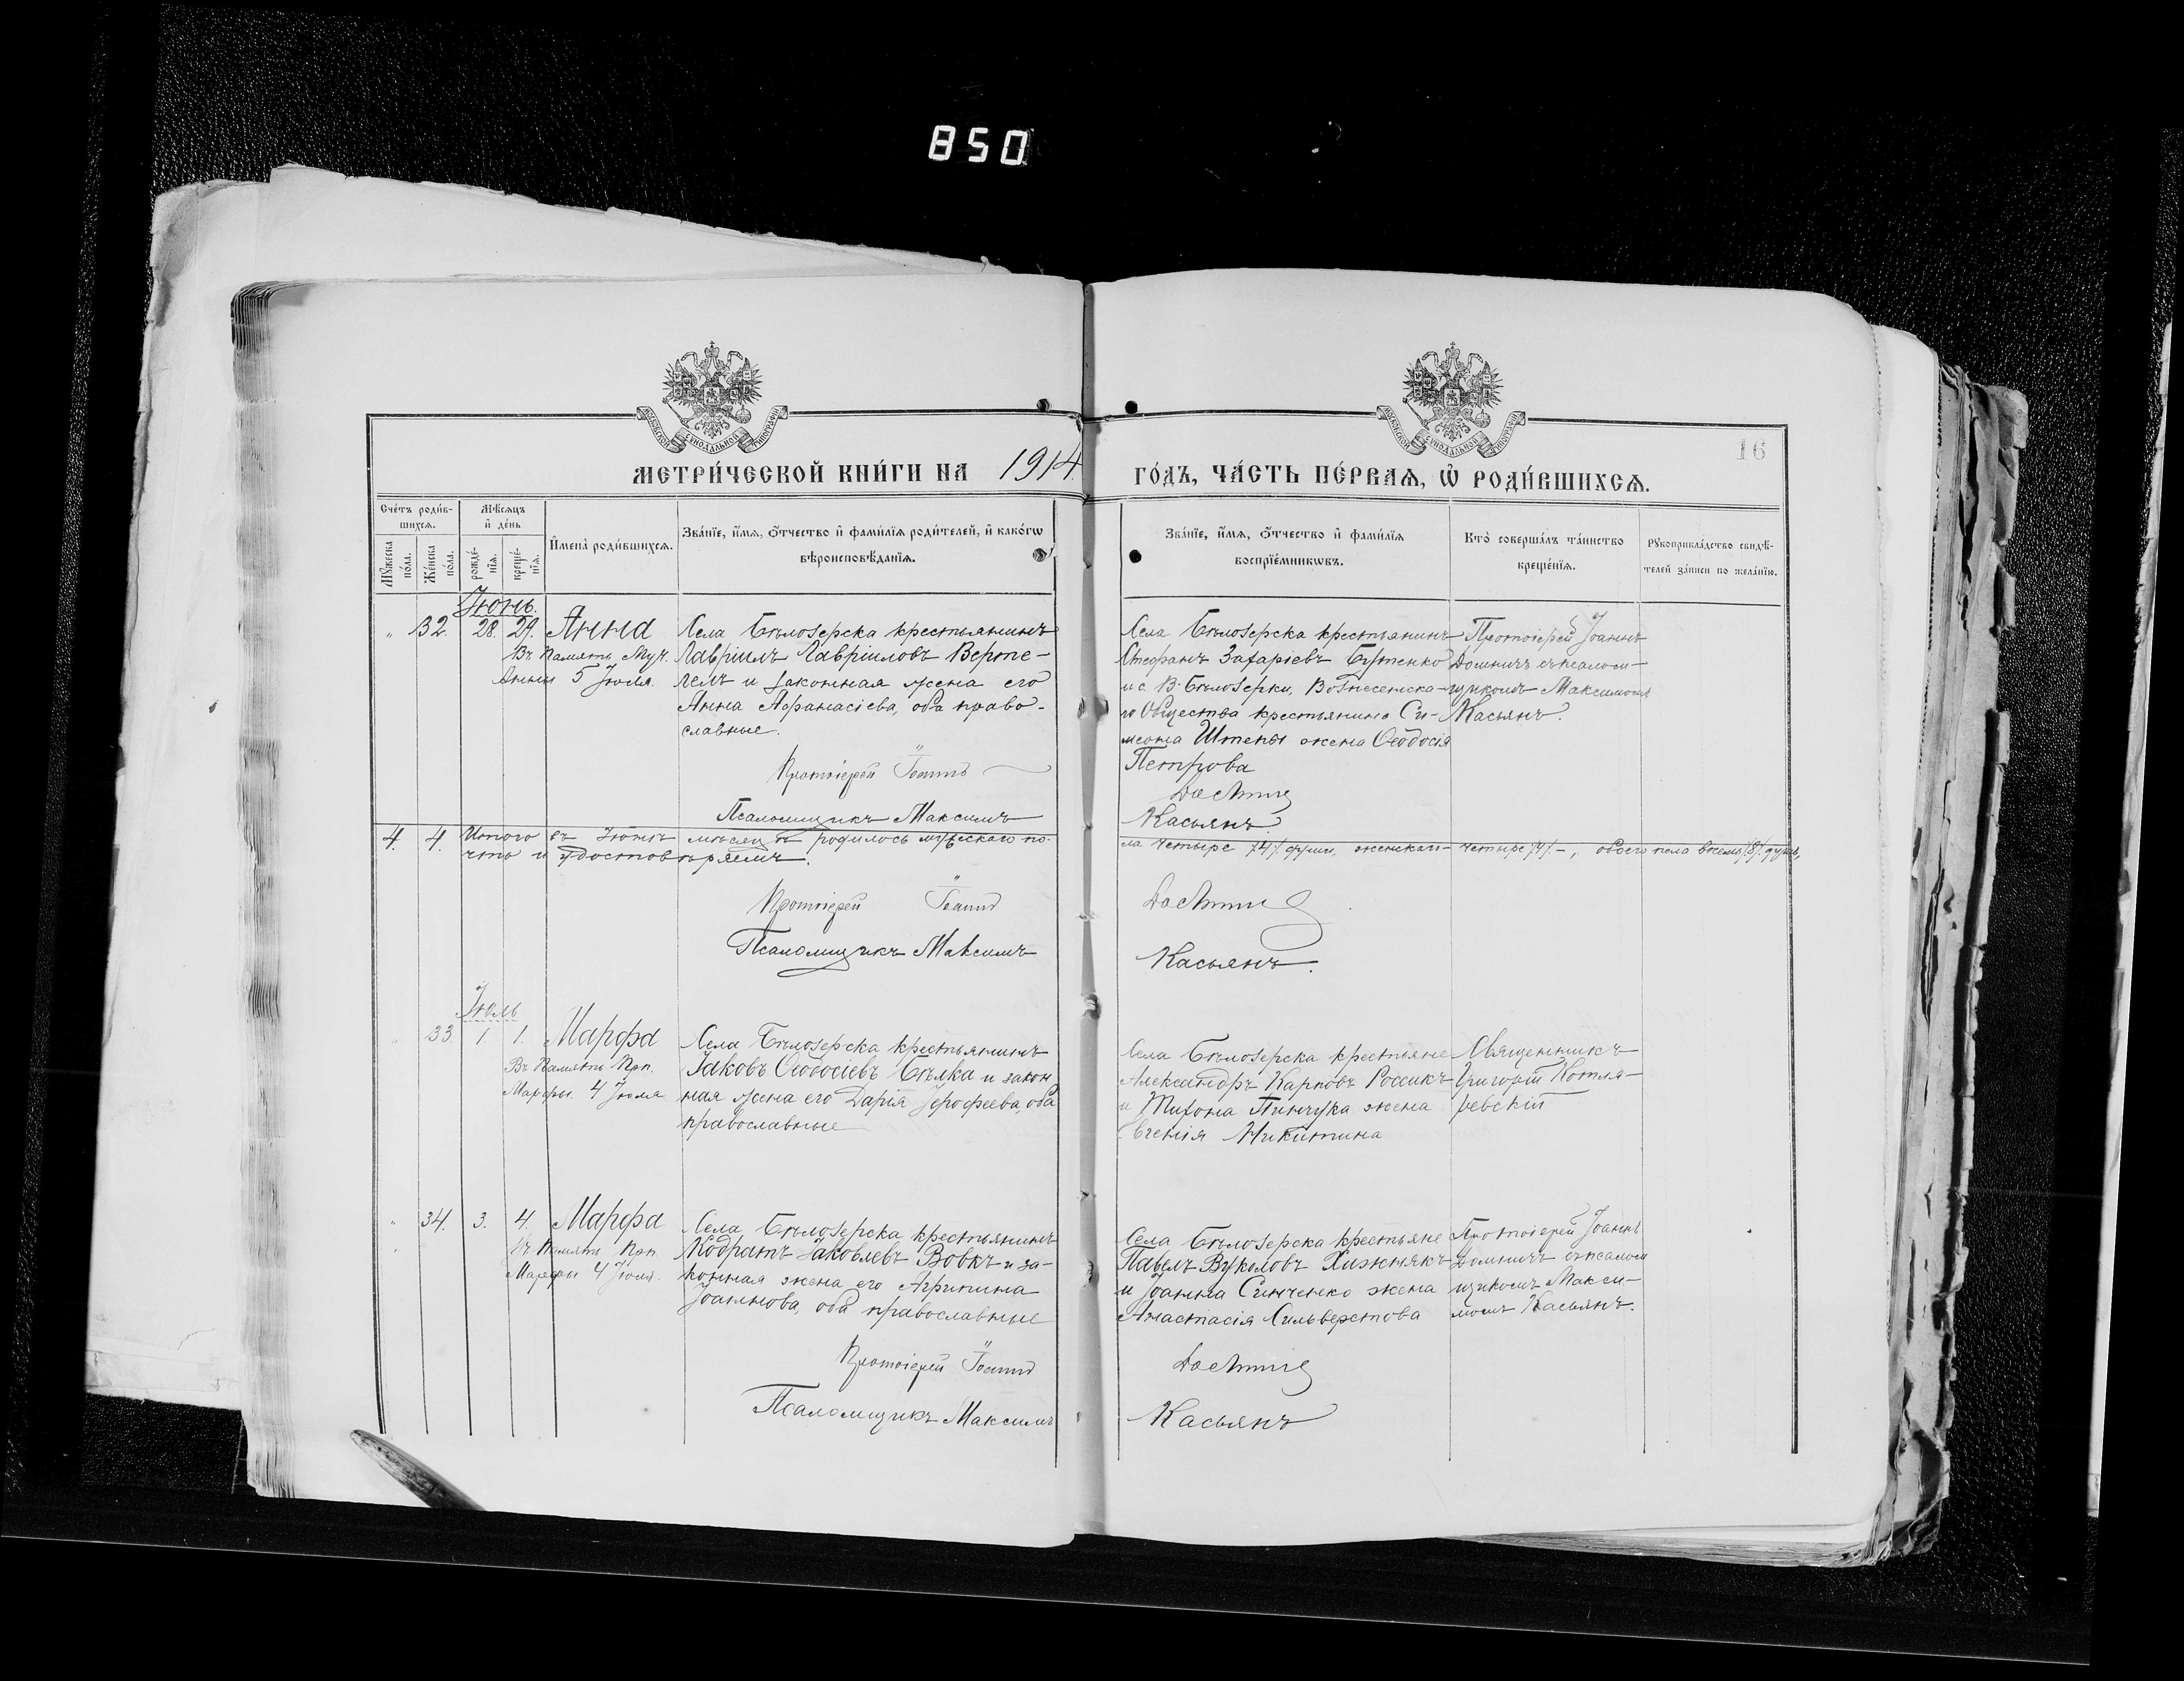 850
МОСКОВСКОЙ СѴНОДАЛЬНОЙ ТИПОГРАФІИ
МОСКОВСКОЙ СѴНОДАЛЬНОЙ ТИПОГРАФІИ
16
МЕТРИ́ЧЕСКОЙ КНИ́ГИ НА 1914
ГО́ДЪ, ЧА́СТЬ ПЕ́РВАѦ, Ѡ҆ РОДИ́ВШИХСѦ.
Сче́тъ роди́в-
шихсѧ.
Мꙋ́жеска по́ла.
Же́нска по́ла.
Мѣ́сѧцъ
и҆ де́нь
рожде́-
нїѧ.
креще́-
нїѧ.
И҆мена̀ роди́вшихсѧ.
Зва́нїе, и҆́мѧ, ѻ҆́тчество и҆ фами́лїѧ роди́телей, и҆ како́гѡ
вѣроисповѣ́данїѧ.
Зва́нїе, и҆́мѧ, ѻ҆́тчество и҆ фами́лїѧ
воспрїе́мникѡвъ.
Кто̀ соверша́лъ та́инство
креще́нїѧ.
Рꙋкоприкла́дство свидѣ́-
телей за́писи по жела́нїю.
Іюнь.
" 32. 28. 29. Анна
Въ память Муч.
Анны 5 Іюля.
Села Бѣлозерска крестьянинъ
Гавріилъ Гавріиловъ Верте-
лемъ и законная жена его
Анна Афанасіева, оба право-
славные.
Протоіерей Іоаннъ
Псаломщикъ Максимъ
Села Бѣлозерска крестьянинъ
Стефанъ Захаріевъ Бутенко
и с. В-Бѣлозерки, Вознесенска-
го Общества крестьянина Си-
меона Штепы жена Ѳеодосія
Петрова
Касьянъ.
Протоіерей Іоаннъ
Домничъ съ псалом-
щикомъ Максимомъ
Касьянъ.
4. 4. Итого въ Іюнѣ мѣсяцѣ родилось мужескаго по-
ла четыре /4/ души, женскаго четыре /4/ –, обоего пола восемь /8/. душъ,
что и удостовѣряемъ.
Протоіерей Іоаннъ
Псаломщикъ Максимъ
Касьянъ.
Іюль
" 33. 1. 1. Марфа
Въ память Прп.
Марфы 4 Іюля
Села Бѣлозерска крестьянинъ
Іаковъ Ѳеодосіевъ Бѣлка и закон
ная жена его Дарія Іерофеева, оба
православные
Села Бѣлозерска крестьяне
Александръ Карповъ Россикъ
и Тихона Пинчука жена
Евгенія Никитина
Священникъ
Григорій Котля-
ревскій
" 34. 3. 4. Марфа
Въ память Прп.
Марфы 4 Іюля.
Села Бѣлозерска крестьянинъ
Кодратъ Іаковлевъ Вовкъ и за-
конная жена его Агрипина
Іоаннова, оба православные
Протоіерей Іоаннъ
Псаломщикъ Максимъ
Села Бѣлозерска крестьяне
Павелъ Вуколовъ Хижнякъ
и Іоанна Синченко жена
Анастасія Сильверстова
Касьянъ
Протоіерей Іоаннъ
Домничъ съ псалом
щикомъ Макси-
момъ Касьянъ.